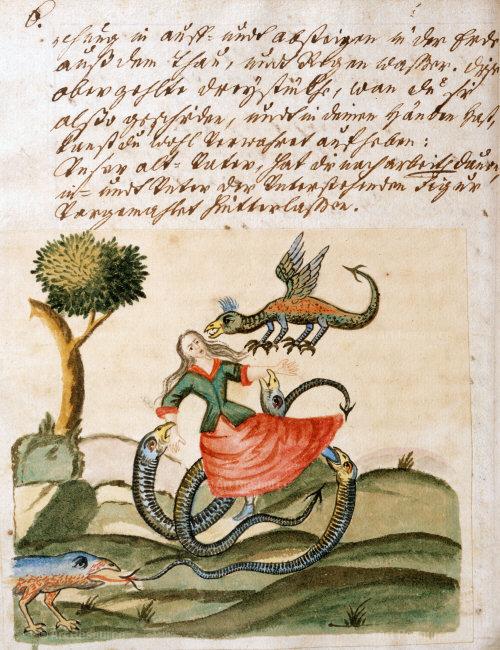 6.
chung in auff= und absteigen in der Erde
auß dem Thau, und Regen waßer. Diße
ober zehlte drey stücke, wan du sie
alßo geschieden, und in deinen Händen hast,
kanst du wohl verwahret auffheben:
Unser alt= Vater, hat dernach arbeit
in= und unter der unterstehenden Figur
Vorgemahlet hinterlaßen.